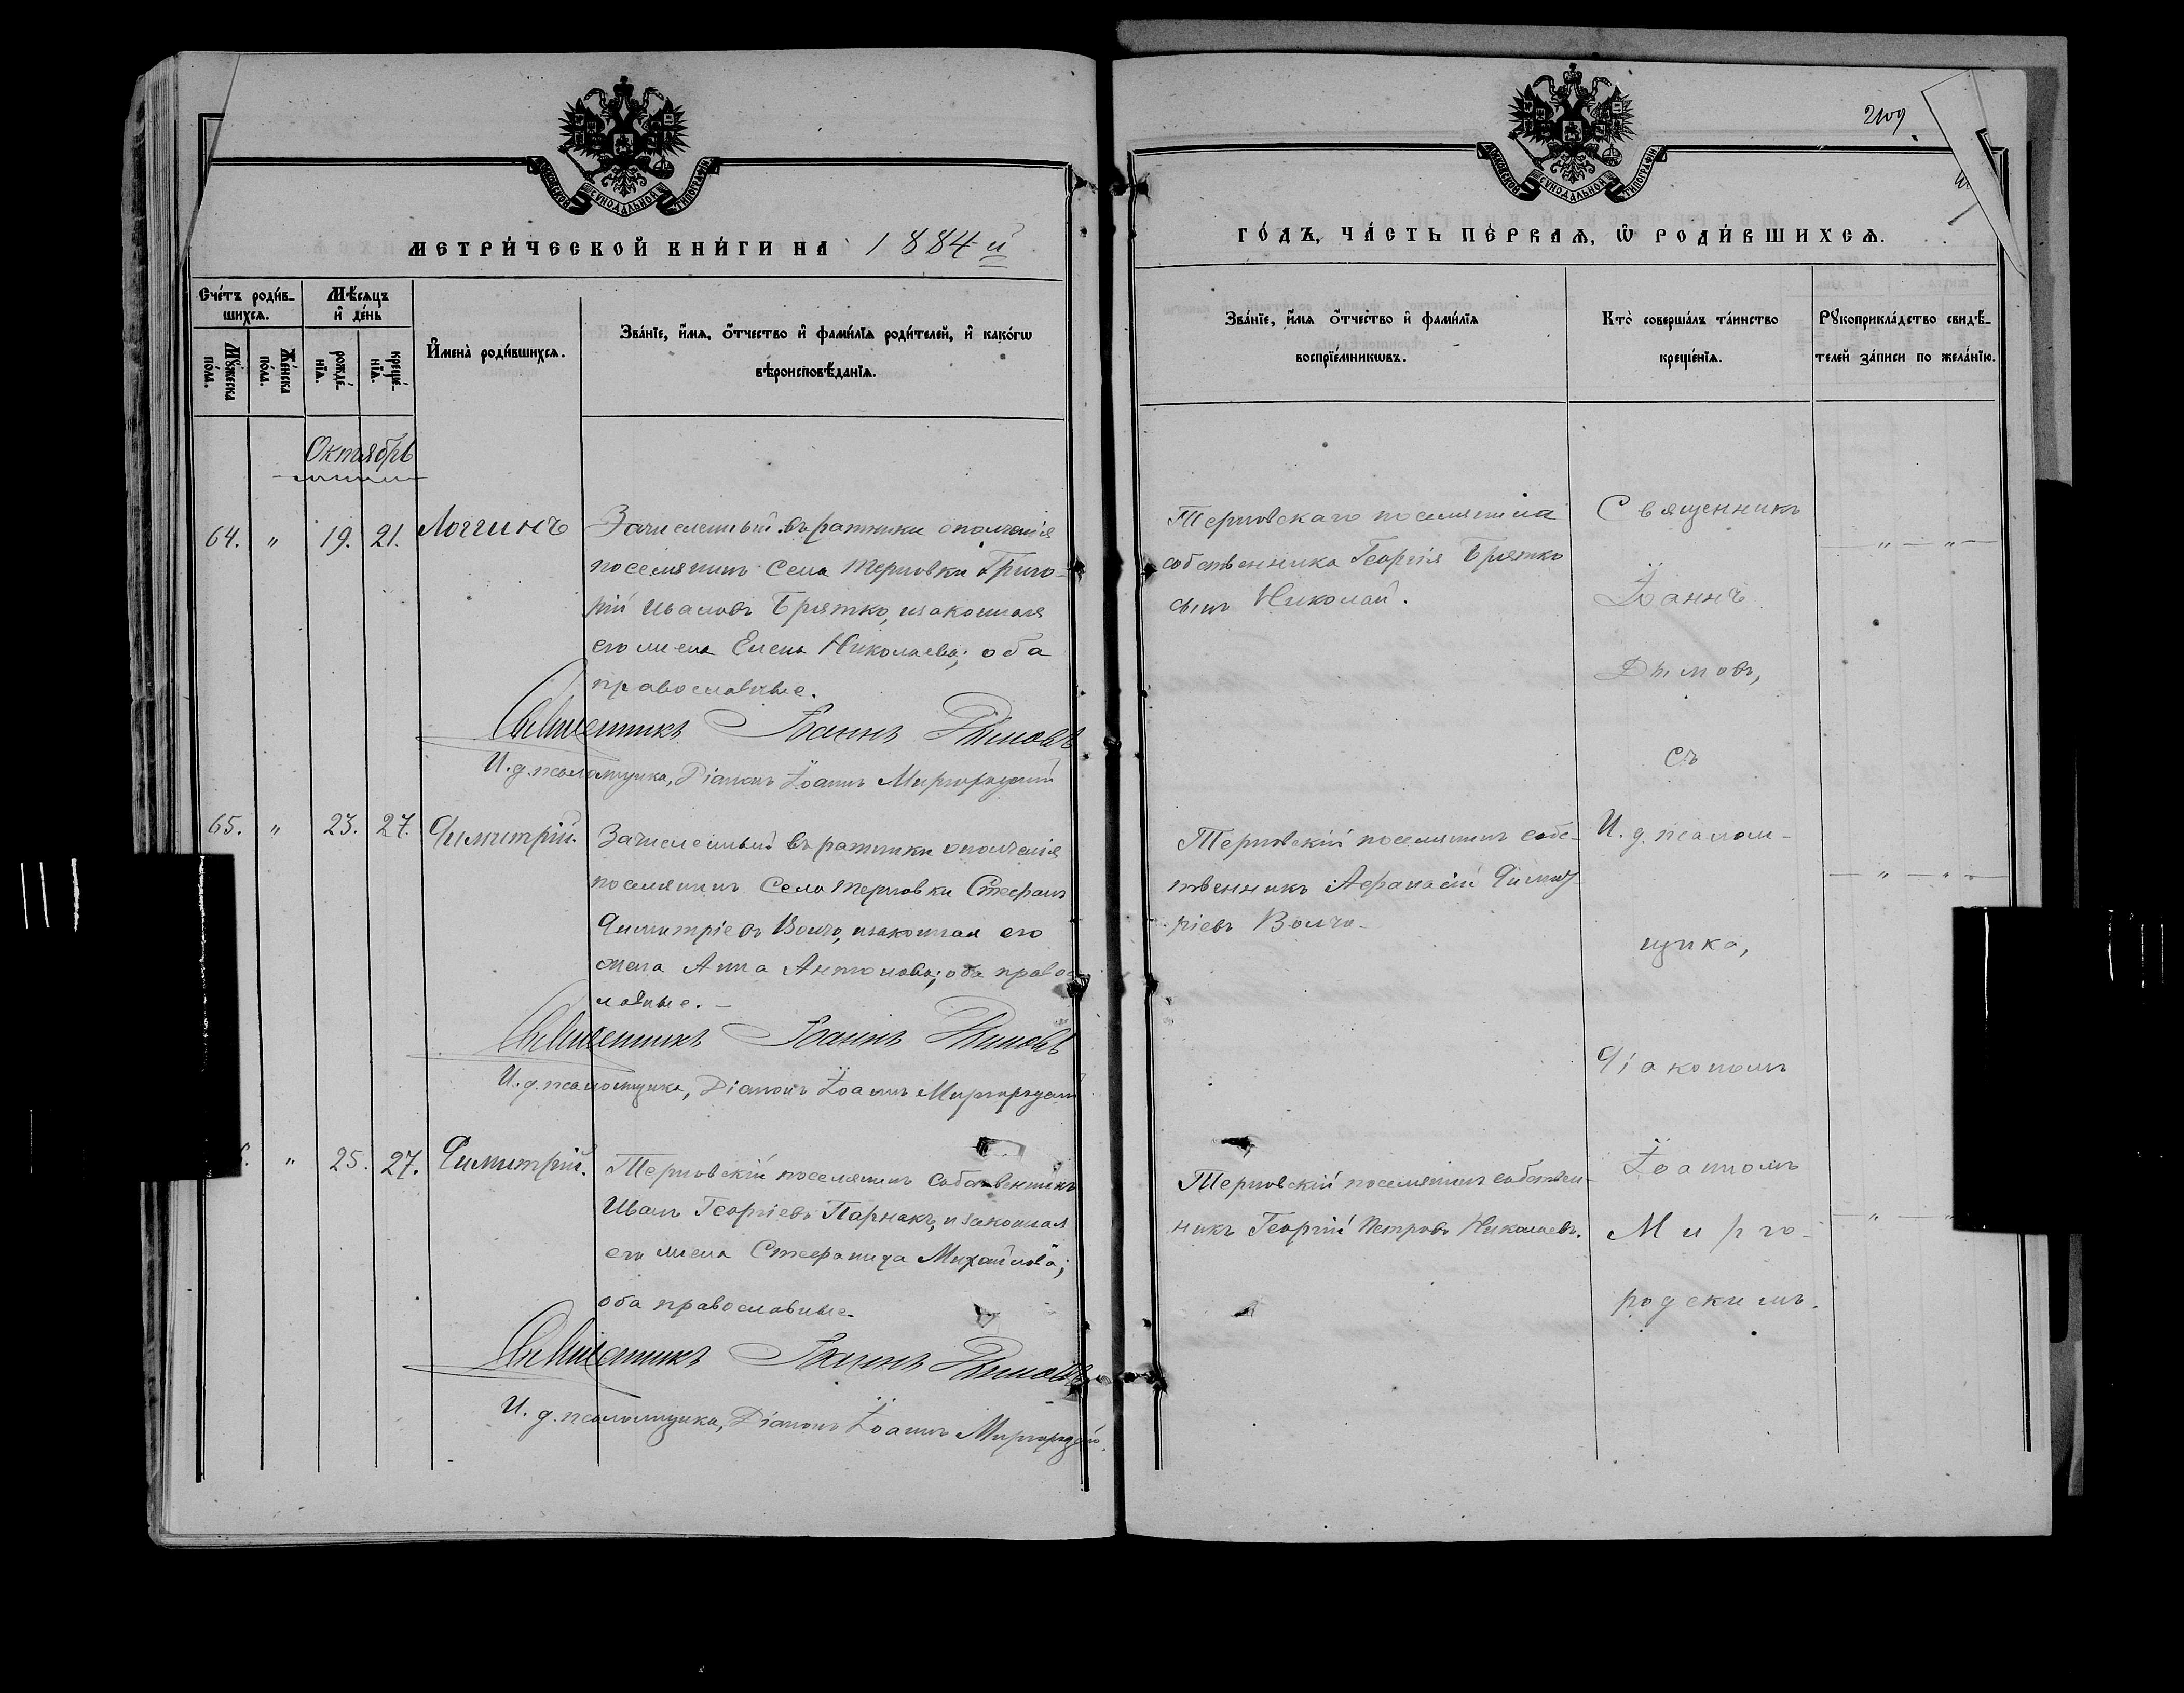 МОСКОВСКОЙ СѴНОДАЛЬНОЙ ТИПОГРАФІИ
МЕТРИ́ЧЕСКОЙ КНИ́ГИ НА 1884й
Сче́тъ роди́в-
шихсѧ.
Мѣ́сѧцъ
и҆ де́нь
Мꙋ́жеска
по́ла.
Же́нска
по́ла.
рожде́-
нїѧ.
креще́-
нїѧ.
И҆мена̀ роди́вшихсѧ.
Зва́нїе, и҆́мѧ, ѻ҆́тчество и҆ фами́лїѧ роди́телей, и҆ како́гѡ
вѣроисповѣ́данїѧ.
Октябрь
64. " 19. 21. Логгинъ
Зачисленный въ ратники ополченія
поселянинъ Села Терновки Григо-
рій Ивановъ Брятко, и законная
его жена Елена Николаева; оба
православные.
Священникъ Іоаннъ Дымовъ
И. д. псаломщика, Діаконъ Іоаннъ Миргородскій
65. " 23. 27. Димитрій.
Зачисленный въ ратники ополченія
поселянинъ Села Терновки Стефанъ
Димитріевъ Волчо, и законная его
жена Анна Антонова; оба правос-
лавные.
Священникъ Іоаннъ Дымовъ
И. д. псаломщика, Діаконъ Іоаннъ Миргородскій
" 25. 27. Димитрій.
Терновскій поселянинъ собственникъ
Иванъ Георгіевъ Парнакъ, и законная
его жена Стефанида Михайлова;
оба православные.
Священникъ Іоаннъ Дымовъ
И. д. псаломщика, Діаконъ Іоаннъ Миргородскій.
2109
МОСКОВСКОЙ СѴНОДАЛЬНОЙ ТИПОГРАФІИ
ГО́ДЪ, ЧА́СТЬ ПЕ́РВАѦ, Ѡ҆ РОДИ́ВШИХСѦ.
Зва́нїе, и҆́мѧ ѻ҆́тчество и҆ фами́лїѧ
воспрїе́мникѡвъ.
Кто̀ соверша́лъ та́инство
креще́нїѧ.
Рꙋкоприкла́дство свидѣ́-
телей за́писи по жела́нїю.
Терновскаго поселянина
собственника Георгія Брятко
сынъ Николай.
Терновскій поселянинъ собс-
твенникъ Афанасій Димит-
ріевъ Волчо.
Терновскій поселянинъ собствен-
никъ Георгій Петровъ Николаевъ.
Священникъ
Іоаннъ
Дымовъ,
съ
И. д. псалом-
щика,
Діакономъ
Іоанномъ
Мирго-
родскимъ.